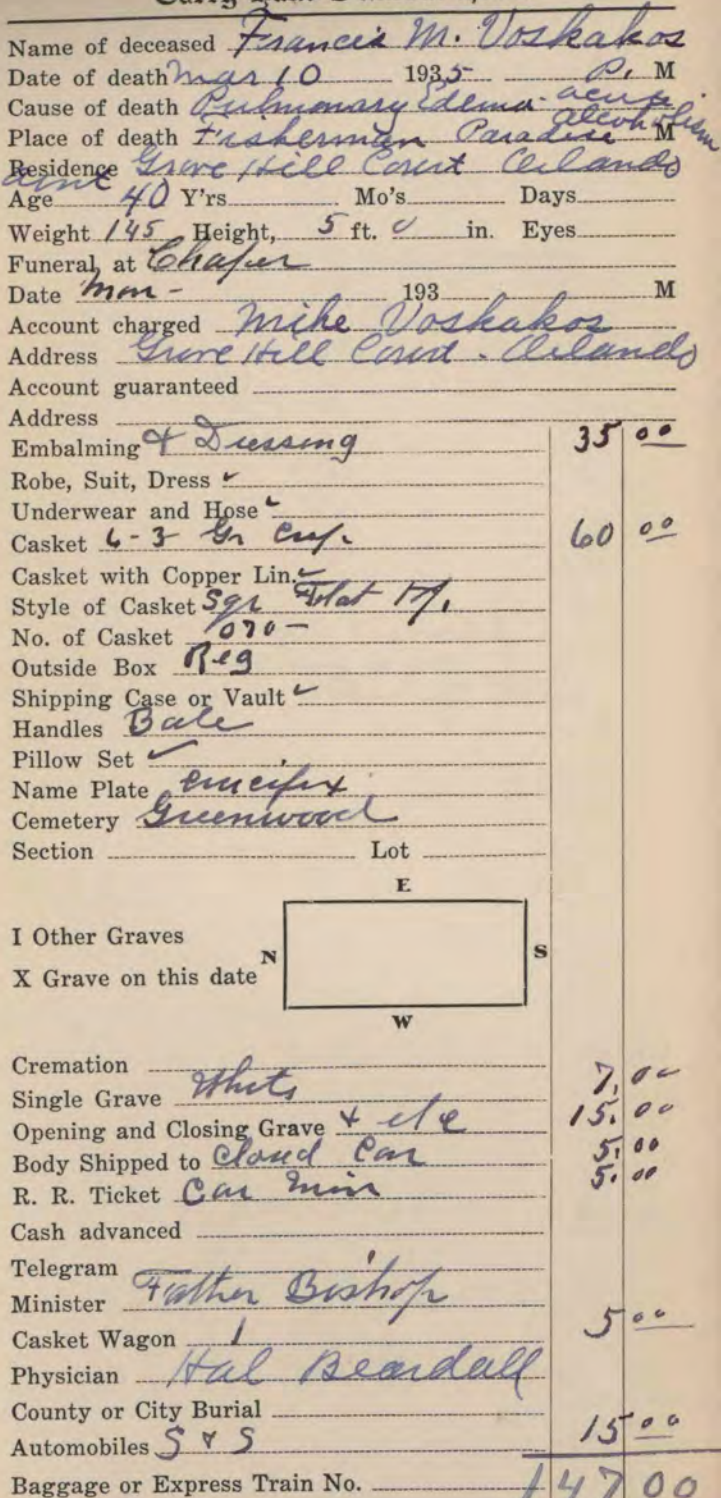 Name of deceased Francis M. Voskakos
Date of death Mar 10 1935 P. M
Cause of death Pulmonary Edema - acute alcoholism
Place of death Fisherman Paradise M
Residence Grove Hill Court Orlando
Age 40 Y'rs Mo's Days
Weight 145 Height, 5 ft. 0 in. Eyes
Funeral at Chapel
Date Mon - 193 M
Account charged Mike Voskakos
Address Grove Hill Court - Orlando
Account guaranteed
Address
Embalming & Dressing 35 00
Robe, Suit, Dress ✓
Underwear and Hose ✓
Casket 6-3 Gr Crep. 60 00
Casket with Copper Lin. ✓
Style of Casket Sqr Flat
No. of Casket 070 -
Outside Box Reg
Shipping Case or Vault ✓
Handles Bale
Pillow Set ✓
Name Plate Crucifix
Cemetery Greenwood
Section Lot
E
I Other Graves
N S
X Grave on this date
W
Cremation
Single Grave White 7.00
Opening and Closing Grave & etc 15.00
Body Shipped to Closed Car 5.00
R. R. Ticket Car Min 5.00
Cash advanced
Telegram
Minister Father Bishop
Casket Wagon 1 5 00
Physician Hal Beardall
County or City Burial
Automobiles S & S 15 00
Baggage or Express Train No. 147 00